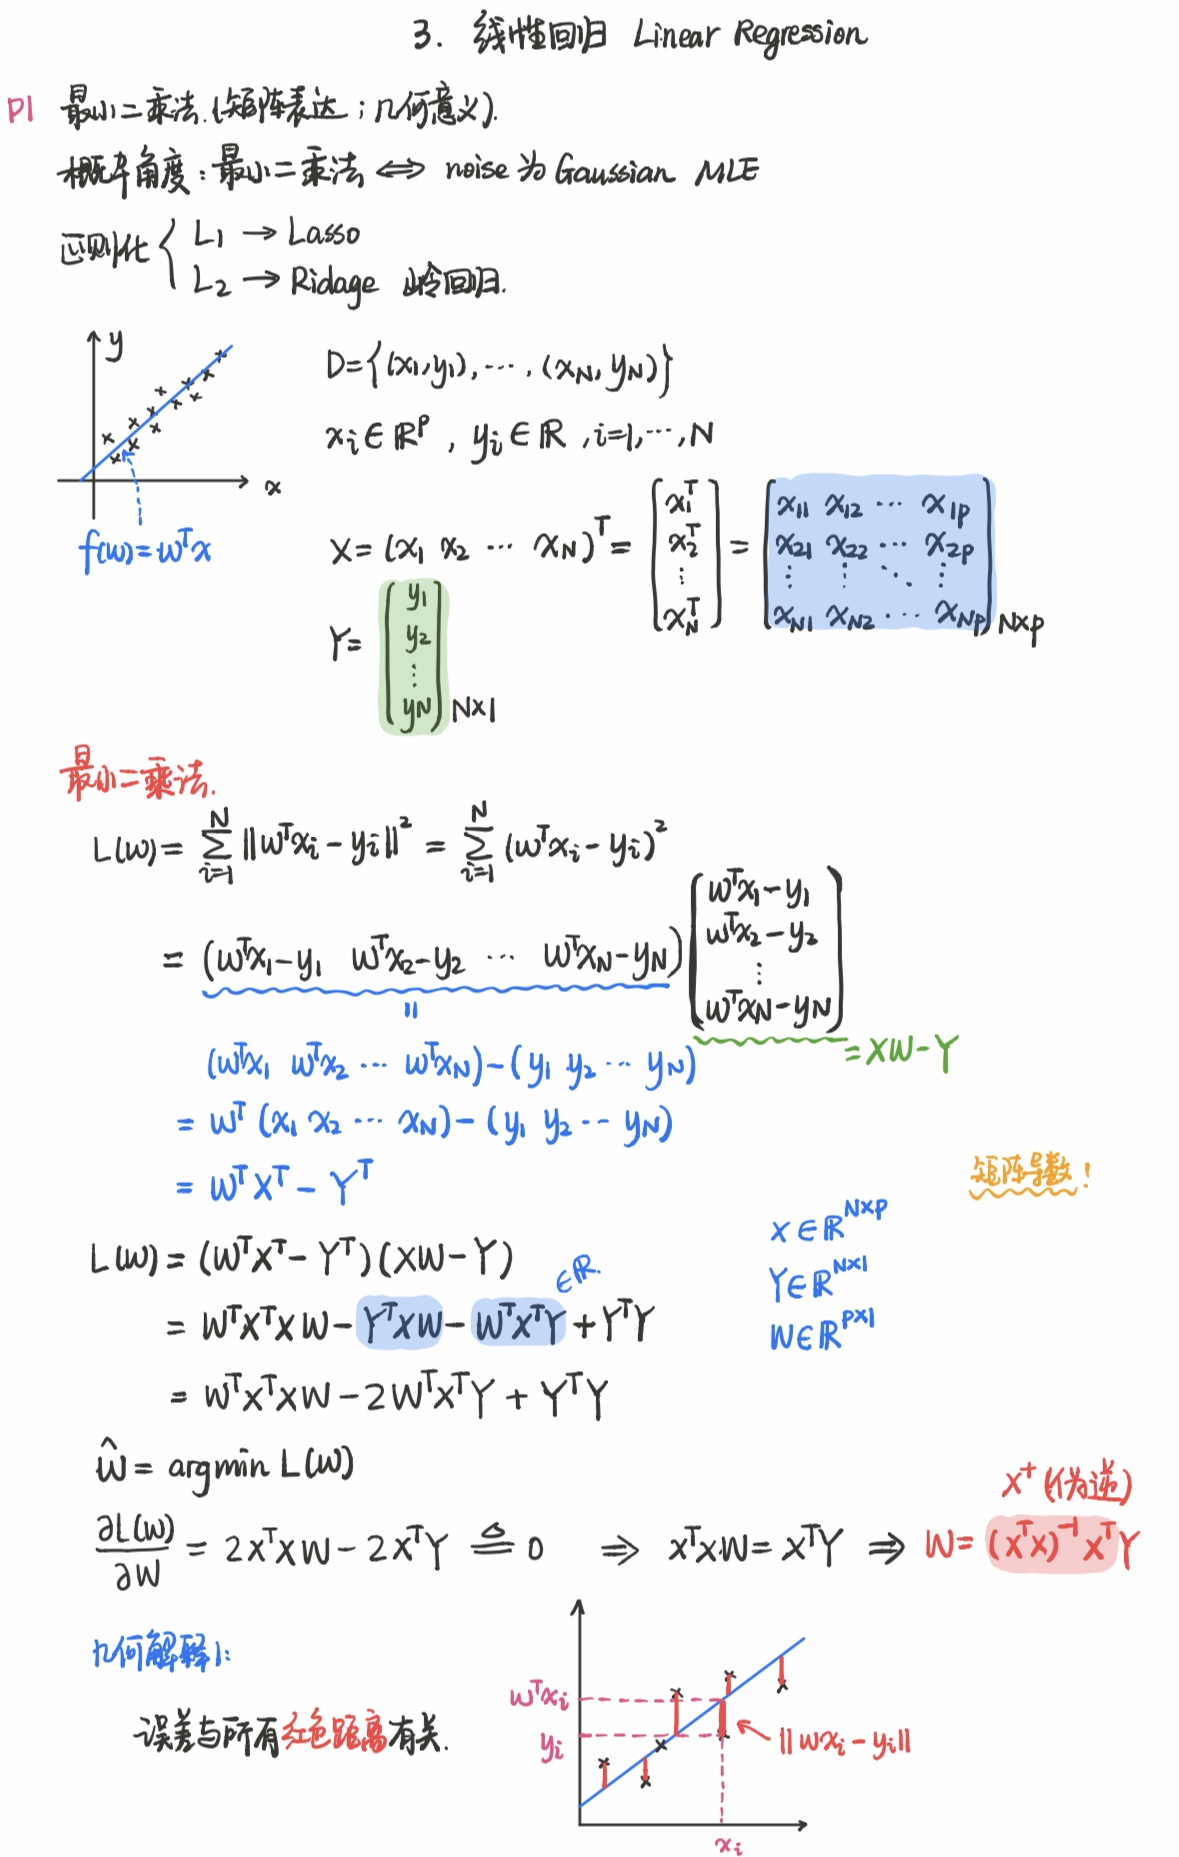 3. 线性回归 Linear Regression
P1 最小二乘法.(矩阵表达；几何意义).
概率角度：最小二乘法 ⟺ noise为Gaussian MLE
正则化 { L₁ → Lasso
L₂ → Ridage 岭回归.
y
x
f(w)=wᵀx
D={(x₁,y₁),⋯,(x_N,y_N)}
xᵢ∈ℝᵖ, yᵢ∈ℝ, i=1,⋯,N
X=(x₁ x₂ ⋯ x_N)ᵀ = (x₁ᵀ x₂ᵀ ⋮ x_Nᵀ) = (x₁₁ x₁₂ ⋯ x₁ₚ
x₂₁ x₂₂ ⋯ x₂ₚ
⋮ ⋮ ⋱ ⋮
x_N1 x_N2 ⋯ x_Np)N×p
Y= (y₁ y₂ ⋮ y_N)N×1
最小二乘法.
L(w)= ∑_{i=1}^{N} ‖wᵀxᵢ-yᵢ‖² = ∑_{i=1}^{N} (wᵀxᵢ-yᵢ)²
= (wᵀx₁-y₁ wᵀx₂-y₂ ⋯ wᵀx_N-y_N) (wᵀx₁-y₁ wᵀx₂-y₂ ⋮ wᵀx_N-y_N)
=XW-Y
(wᵀx₁ wᵀx₂ ⋯ wᵀx_N)-(y₁ y₂ ⋯ y_N)
= wᵀ(x₁ x₂ ⋯ x_N)-(y₁ y₂ ⋯ y_N)
= wᵀXᵀ-Yᵀ
矩阵导数!
X∈ℝ^{N×p}
Y∈ℝ^{N×1}
W∈ℝ^{p×1}
L(w)= (WᵀXᵀ-Yᵀ)(XW-Y)
= WᵀXᵀXW-YᵀXW-WᵀXᵀY+YᵀY
∈ℝ.
= WᵀXᵀXW-2WᵀXᵀY+YᵀY
ŵ= argmin L(w)
∂L(w)/∂W = 2XᵀXW-2XᵀY ≜ 0 ⇒ XᵀXW=XᵀY ⇒ W=(XᵀX)⁻¹XᵀY
X⁺(伪逆)
几何解释1:
误差与所有红色距离有关.
wᵀxᵢ
yᵢ
‖wxᵢ-yᵢ‖
xᵢ